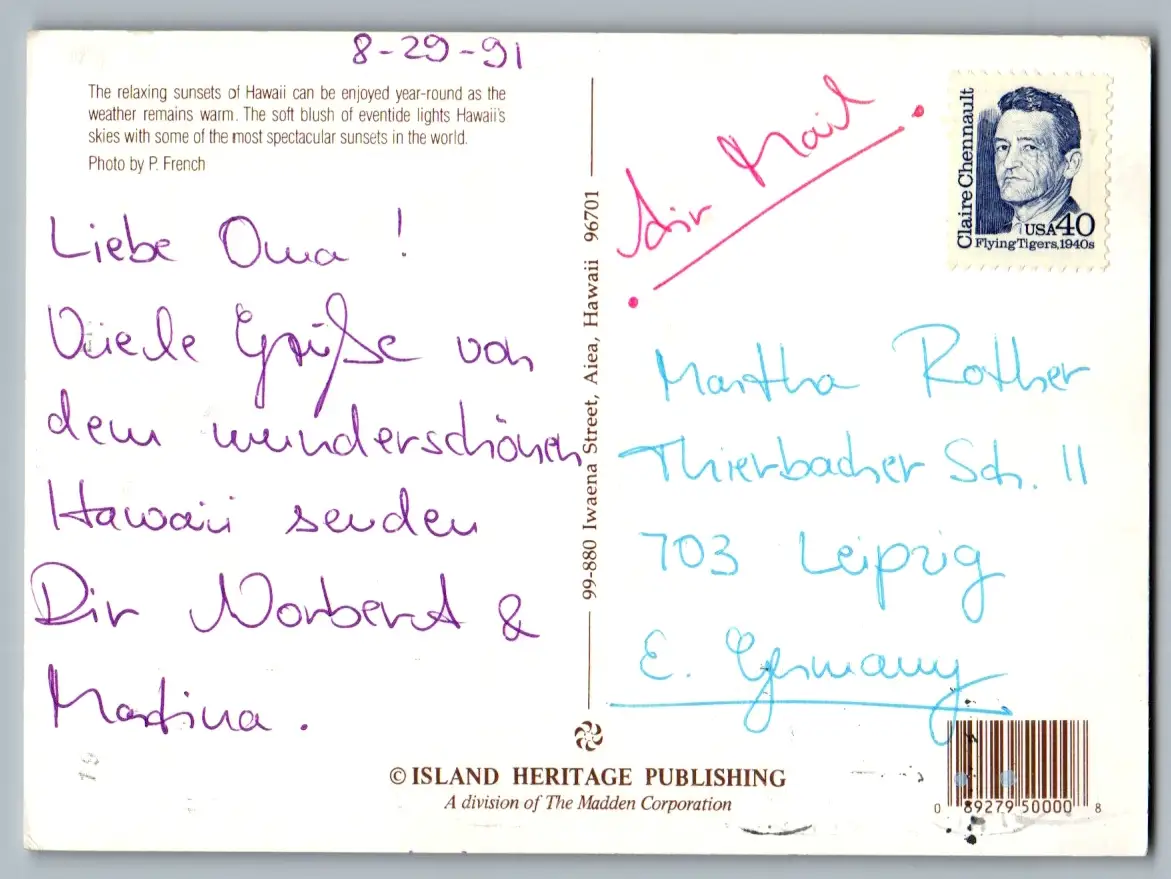 8-29-91
The relaxing sunsets of Hawaii can be enjoyed year-round as the
weather remains warm. The soft blush of eventide lights Hawaii's
skies with some of the most spectacular sunsets in the world.
Photo by P. French
Liebe Oma !
Viele Grüße von
dem wunderschönen
Hawaii senden
Dir Norbert &
Martina.
99-880 Iwaena Street, Aiea, Hawaii 96701
Air Mail
Claire Chennault
USA 40
Flying Tigers, 1940s
Martha Rother
Thierbacher Sch. 11
703 Leipzig
E. Germany
© ISLAND HERITAGE PUBLISHING
A division of The Madden Corporation
0 89279 50000 8